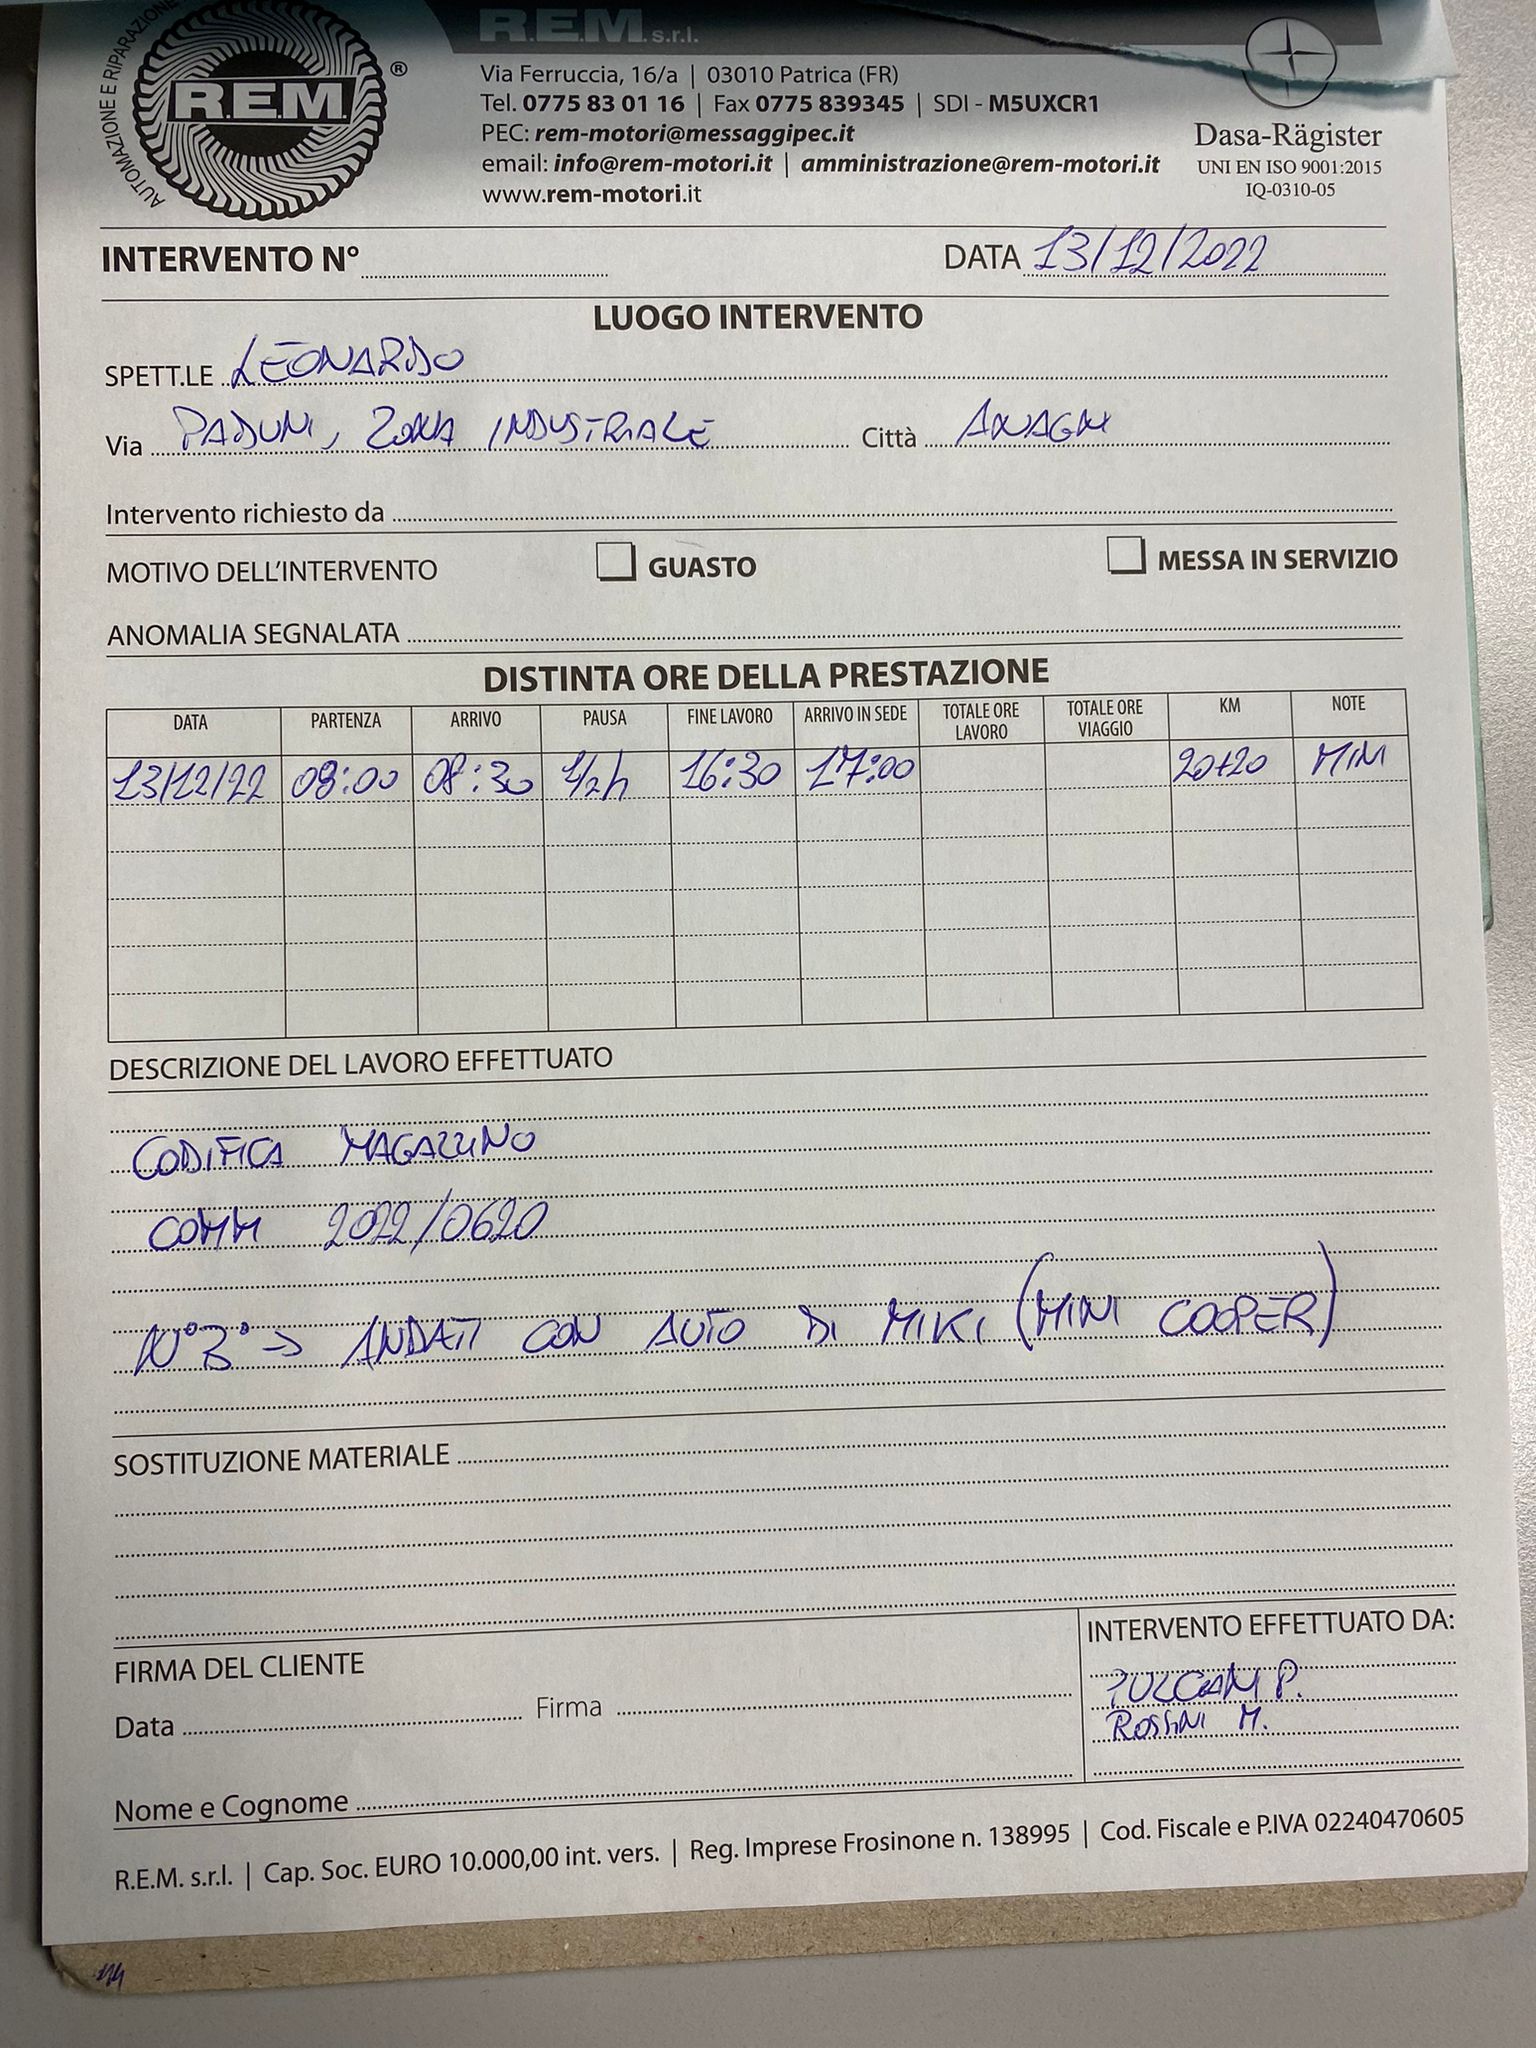 AUTOMAZIONE E RIPARAZIONE
R.E.M. ®
R.E.M. s.r.l.
Via Ferruccia, 16/a | 03010 Patrica (FR)
Tel. 0775 83 01 16 | Fax 0775 839345 | SDI - M5UXCR1
PEC: rem-motori@messaggipec.it
email: info@rem-motori.it | amministrazione@rem-motori.it
www.rem-motori.it
Dasa-Rägister
UNI EN ISO 9001:2015
IQ-0310-05
INTERVENTO N° DATA 13/12/2022
LUOGO INTERVENTO
SPETT.LE LEONARDO
Via PADUNI, ZONA INDUSTRIALE Città ANAGNI
Intervento richiesto da
MOTIVO DELL'INTERVENTO GUASTO MESSA IN SERVIZIO
ANOMALIA SEGNALATA
DISTINTA ORE DELLA PRESTAZIONE
DATA PARTENZA ARRIVO PAUSA FINE LAVORO ARRIVO IN SEDE TOTALE ORE LAVORO TOTALE ORE VIAGGIO KM NOTE
13/12/22 08:00 08:30 1/2h 16:30 17:00 20+20 MINI
DESCRIZIONE DEL LAVORO EFFETTUATO
CODIFICA MAGAZZINO
COMM 2022/0620
→ ANDATI CON AUTO DI MIKI (MINI COOPER)
SOSTITUZIONE MATERIALE
FIRMA DEL CLIENTE
Data Firma
Nome e Cognome
INTERVENTO EFFETTUATO DA:
PULCIANI P.
ROSSINI M.
R.E.M. s.r.l. | Cap. Soc. EURO 10.000,00 int. vers. | Reg. Imprese Frosinone n. 138995 | Cod. Fiscale e P.IVA 02240470605